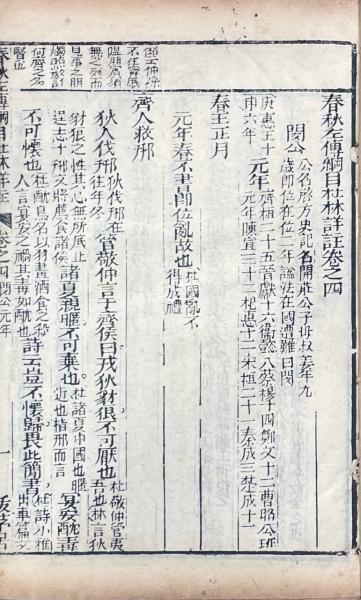 春秋左傳綱目杜林詳註卷之四
閔公
公名啓方史記名開莊公子母叔姜年九
歲即位在位二年謚法在國遭難曰閔
元年
齊桓二十五晉獻十六衞懿八蔡穆十四鄭文十二曹昭公班
元年陳宣三十二杞惠十二宋桓二十一秦成三楚成十一
春王正月
元年春不書即位亂故也
杜國亂不
得成禮
齊人救邢
狄人伐邢
狄伐邢在
往年冬
管敬仲言于齊侯曰戎狄豺狼不可厭也
杜敬仲管夷
吾也林言狄
豺狼之性其心無所底止
逞志于邢又將薦食諸侯
諸夏親暱不可棄也
杜諸夏中國也暱
近也指邢而言
宴安酖毒
不可懷也
杜酖鳥名以羽畫酒食之殺
人言宴安之禍其毒如酖也
詩云豈不懷歸畏此簡書
杜詩小雅
春秋左傳綱目杜林詳註
卷之四
閔公元年
一